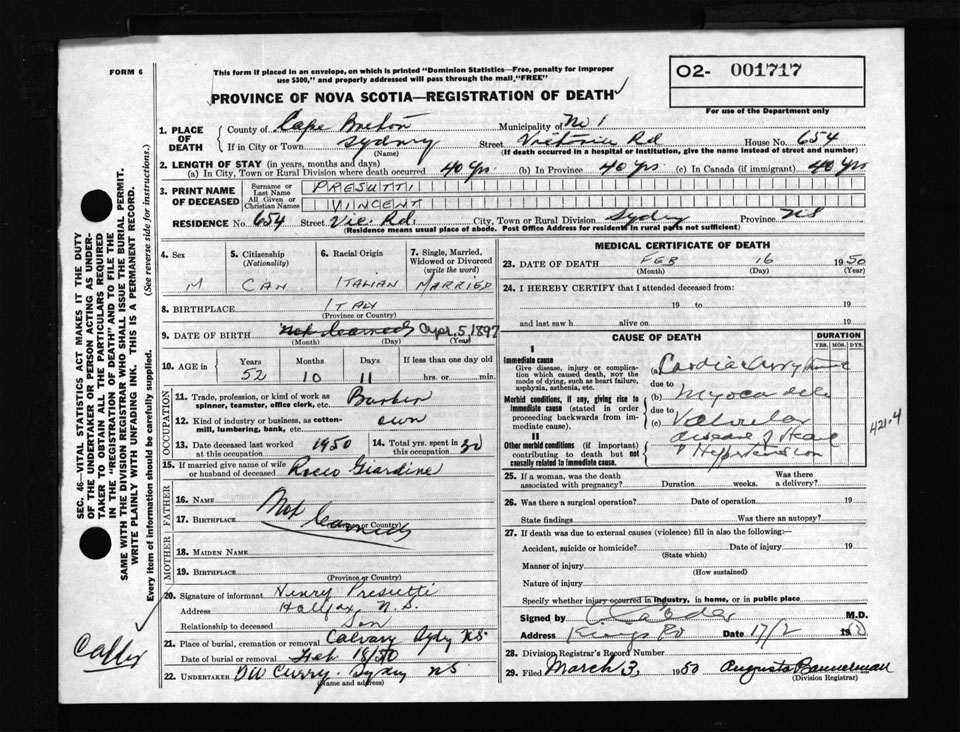 FORM 6
This form if placed in an envelope, on which is printed "Dominion Statistics—Free, penalty for improper
use $300," and properly addressed will pass through the mail, "FREE"
O2- 001717
PROVINCE OF NOVA SCOTIA—REGISTRATION OF DEATH
For use of the Department only
1. PLACE OF DEATH
County of Cape Breton Municipality of No 1
If in City or Town Sydney Street Victoria Rd House No. 654
(Name) (If death occurred in a hospital or institution, give the name instead of street and number)
2. LENGTH OF STAY (in years, months and days)
(a) In City, Town or Rural Division where death occurred 40 yrs (b) In Province 40 yrs (c) In Canada (if immigrant) 40 yrs
3. PRINT NAME OF DECEASED
Surname or Last Name PRESUTTI
All Given or Christian Names VINCENT
RESIDENCE No. 654 Street Vic. Rd. City, Town or Rural Division Sydney Province NS
(Residence means usual place of abode. Post Office Address for residents in rural parts not sufficient)
4. Sex M
5. Citizenship (Nationality) CAN
6. Racial Origin ITALIAN
7. Single, Married, Widowed or Divorced (write the word) MARRIED
8. BIRTHPLACE ITALY
(Province or Country)
9. DATE OF BIRTH Not learned Apr. 5, 1897
(Month) (Day) (Year)
10. AGE in Years 52 Months 10 Days 11 If less than one day old hrs. or min.
OCCUPATION
11. Trade, profession, or kind of work as spinner, teamster, office clerk, etc. Barber
12. Kind of industry or business, as cotton-mill, lumbering, bank, etc. own
13. Date deceased last worked at this occupation 1950 14. Total yrs. spent in this occupation 30
15. If married give name of wife or husband of deceased Rocco Giardine
FATHER
16. NAME
17. BIRTHPLACE Not learned
(Province or Country)
MOTHER
18. MAIDEN NAME
19. BIRTHPLACE
(Province or Country)
20. Signature of informant Henry Presutti
Address Halifax N.S.
Relationship to deceased Son
21. Place of burial, cremation or removal Calvary Sydy NS
Date of burial or removal Feb 18/50
22. UNDERTAKER DW Curry. Sydney NS
(Name and address)
MEDICAL CERTIFICATE OF DEATH
23. DATE OF DEATH FEB 16 1950
(Month) (Day) (Year)
24. I HEREBY CERTIFY that I attended deceased from:
19 to 19
and last saw h alive on 19
CAUSE OF DEATH
DURATION
YRS. MOS. DYS.
I
Immediate cause
Give disease, injury or complication which caused death, NOT the mode of dying, such as heart failure, asphyxia, asthenia, etc.
(a)
due to
Morbid conditions, if any, giving rise to immediate cause (stated in order proceeding backwards from immediate cause).
(b)
due to
(c) Valvular
disease of Heart
& Hypertension
421.4
II
Other morbid conditions (if important) contributing to death but not causally related to immediate cause.
25. If a woman, was the death associated with pregnancy? Duration weeks. Was there a delivery?
26. Was there a surgical operation? Date of operation 19
State findings Was there an autopsy?
27. If death was due to external causes (violence) fill in also the following:—
Accident, suicide or homicide? Date of injury 19
(State which)
Manner of injury
(How sustained)
Nature of injury
Specify whether injury occurred in industry, in home, or in public place
Signed by M.D.
Address Kings Rd Date 17/2 1950
28. Division Registrar's Record Number
29. Filed March 3, 1950 Augusta Bannerman
(Division Registrar)
SEC. 46—VITAL STATISTICS ACT MAKES IT THE DUTY
OF THE UNDERTAKER OR PERSON ACTING AS UNDER-
TAKER TO OBTAIN ALL THE PARTICULARS REQUIRED
IN THE "REGISTRATION OF DEATH" AND TO FILE THE
SAME WITH THE DIVISION REGISTRAR WHO SHALL ISSUE THE BURIAL PERMIT.
WRITE PLAINLY WITH UNFADING INK. THIS IS A PERMANENT RECORD.
Every item of information should be carefully supplied. (See reverse side for instructions.)